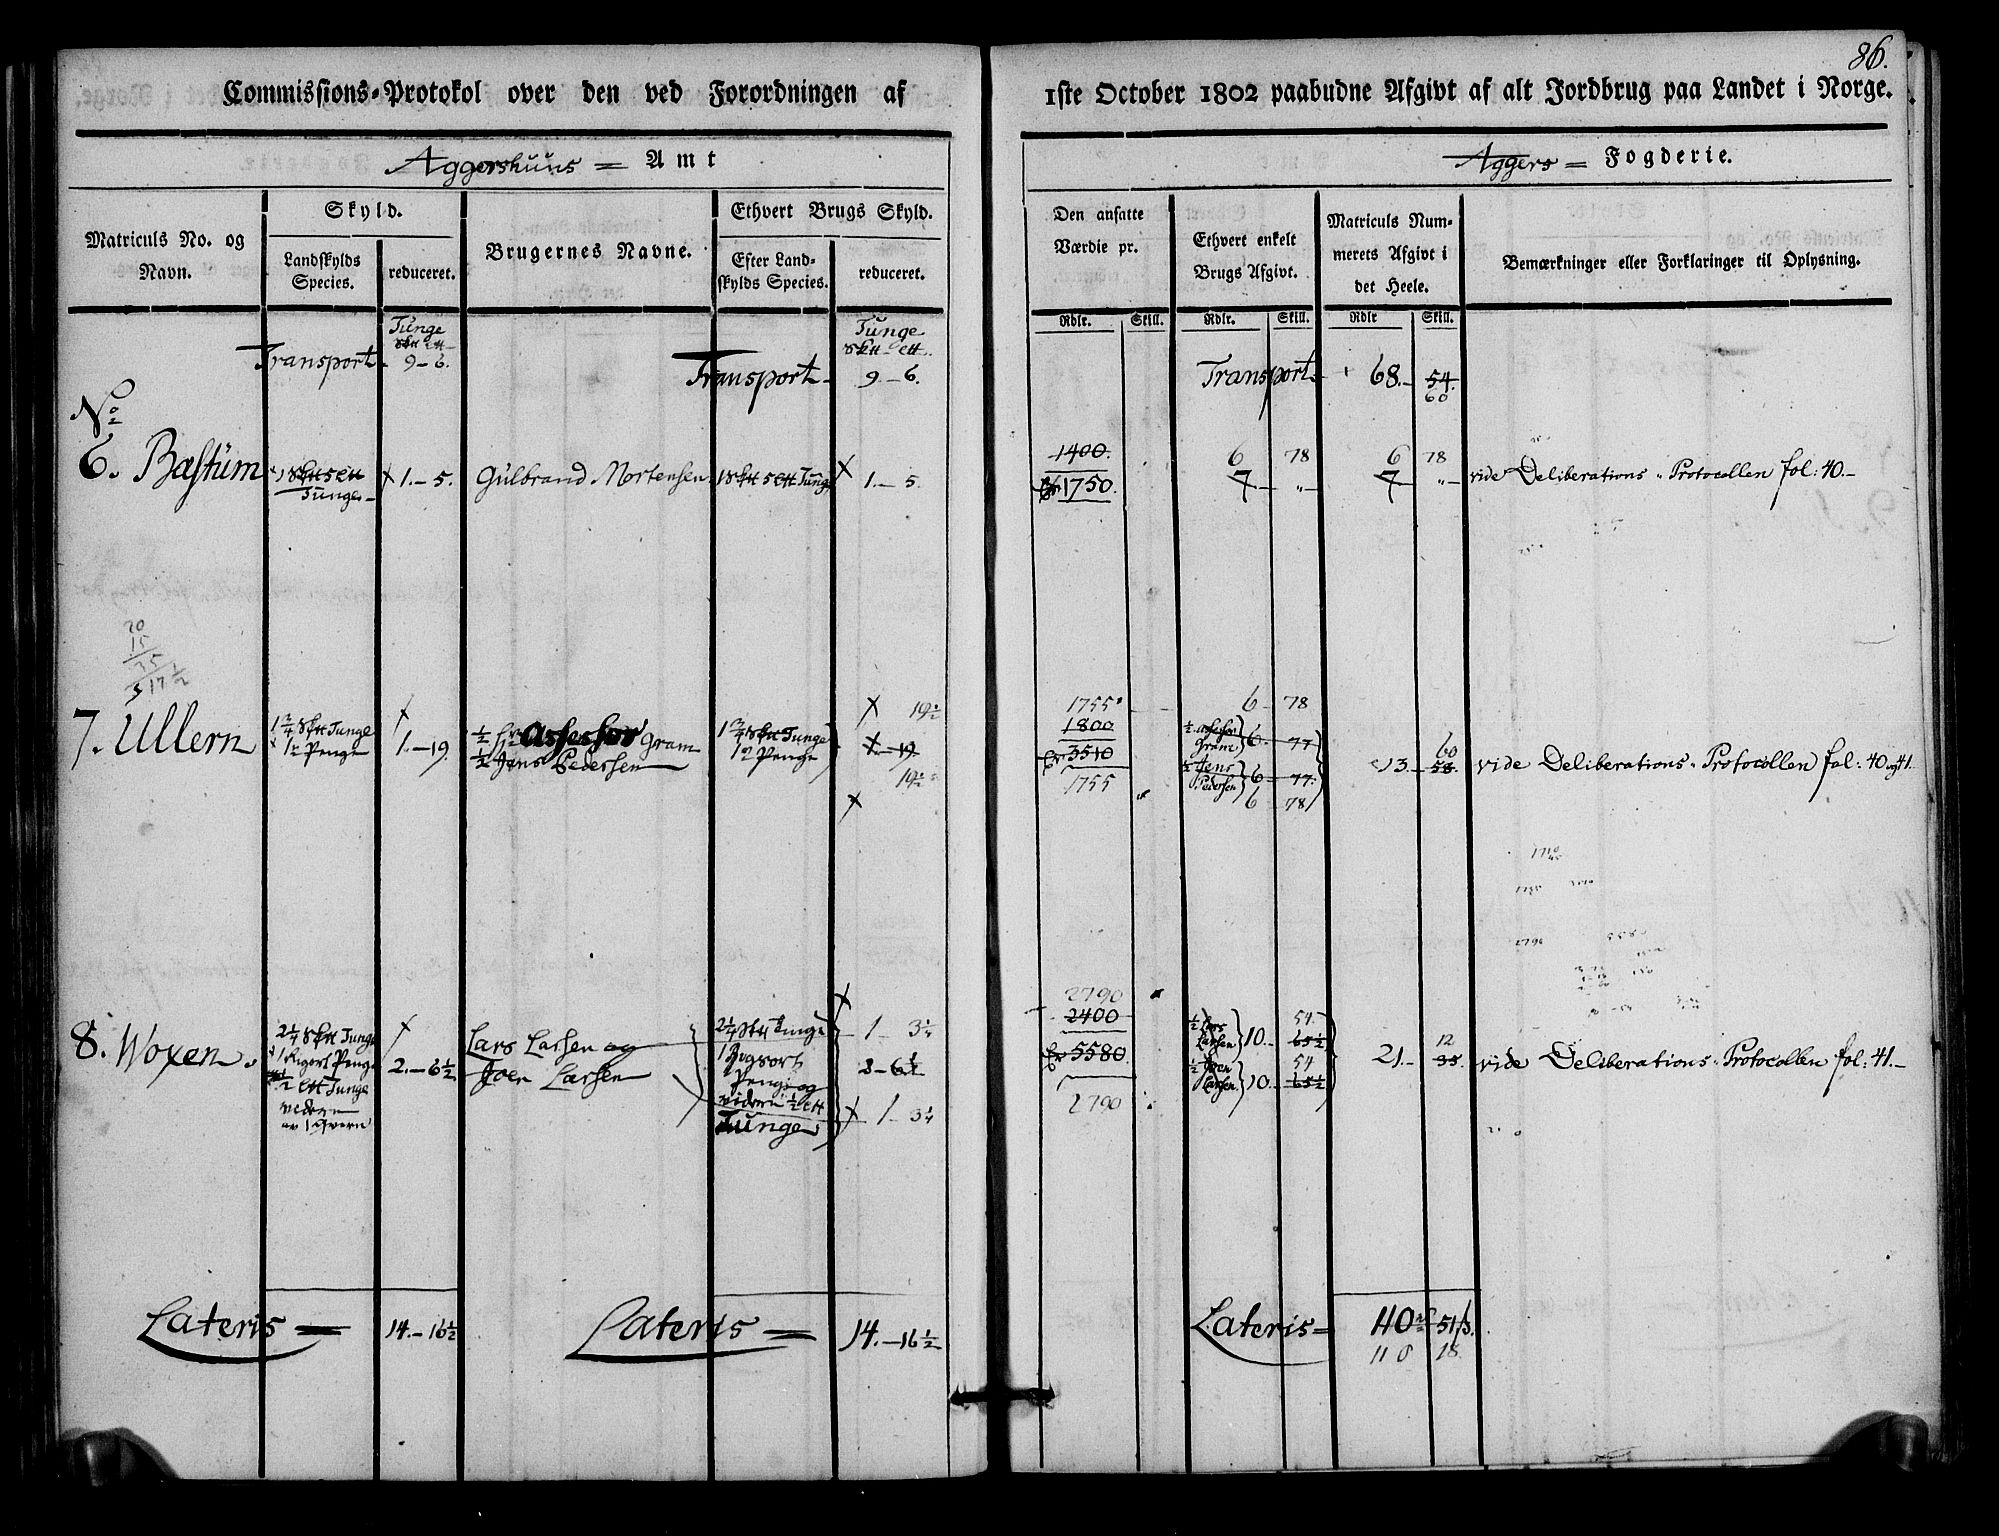 86.
Commissions-Protokol over den ved Forordningen af 1ste October 1802 paabudne Afgivt af alt Jordbrug paa Landet i Norge.
Aggershuus = Amt
Aggers = Fogderie.
Matriculs No. og Navn.
Skyld.
Landskylds Species.
reduceret.
Brugernes Navne.
Ethvert Brugs Skyld.
Efter Landskylds Species.
reduceret.
Den ansatte Værdie pr.
Ethvert enkelt Brugs Afgivt.
Matriculs Nummerets Afgivt i det Heele.
Bemærkninger eller Forklaringer til Oplysning.
Rdlr. Skill. Rdlr. Skill. Rdlr Skill.
Tunge
Tunge
Transport - 9 - 6.
Transport - 9 - 6.
Transport - 68. - 54.
60
No
6 78 6 78
1400.
6. Bæstum 1 Tunge - x 1. - 5. Gulbrand Mortensen x 1. - 5. 1750. 7 - " - 7 - " - vide Deliberations - Protocollen fol: 40. -
20
15
35
17 1/2
x 19 1/2 1755 6 - 78
1800
7. Ullern 1 3/4 Tunge
Penge
x 1. - 19.
1/2 Hr Assessor Gram
1/2 Jens Pedersen
1 3/4 Tunge
Penge
1. - 19.
19
x
3510
1755
1/2 Assessor Gram 6. 77
1/2 Jens Pedersen 6 - 77.
6 - 78
60
13. - 58. vide Deliberations - Protocollen fol: 40 og 41.
2790
2400
5580
2790
8. Woxen.
2 1/4 Tunge
Penge
1/2 Tunge
x 2. - 6 1/2
Lars Larsen og
Joen Larsen
2 1/4 Tunge
Penge og
1/2
Tunge
x 1 - 3 1/4
2 - 6 1/2
x 1 - 3 1/4
54.
1/2 Lars Larsen 10. - 65 1/2
54
1/2 Joen Larsen 10. - 65 1/2
12
21. - 35. vide Deliberations - Protocollen fol: 41. -
Lateris = 14. - 16 1/2
Lateris = 14. - 16 1/2
Lateris = 110 51
110 18.